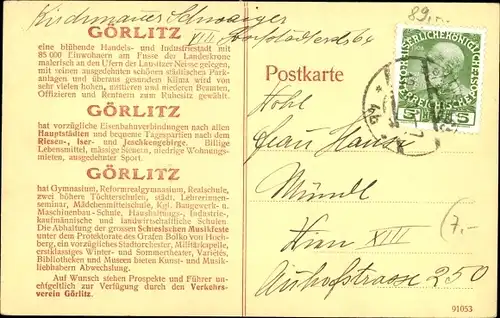 89.
Kirchmauer Schwaiger
VII
GÖRLITZ
eine blühende Handels- und Industriestadt mit
85 000 Einwohnern am Fusse der Landeskrone
malerisch an den Ufern der Lausitzer Neisse gelegen,
mit seinen ausgedehnten schönen städtischen Park-
anlagen und überaus gesundem Klima wird von
sehr vielen hohen, mittleren und niederen Beamten,
Offizieren und Rentnern zum Ruhesitz gewählt.
GÖRLITZ
hat vorzügliche Eisenbahnverbindungen nach allen
Hauptstädten und bequeme Tagespartien nach dem
Riesen-, Iser- und Jeschkengebirge. Billige
Lebensmittel, mässige Steuern, niedrige Wohnungs-
mieten, ausgedehnter Sport.
GÖRLITZ
hat Gymnasium, Reformrealgymnasium, Realschule,
zwei höhere Töchterschulen, städt. Lehrerinnen-
seminar, Mädchenmittelschule, Kgl. Baugewerk- u.
Maschinenbau-Schule, Haushaltungs-, Industrie-
kaufmännische und landwirtschaftliche Schulen.
Die Abhaltung der grossen Schlesischen Musikfeste
unter dem Protektorate des Grafen Bolko von Hoch-
berg, ein vorzügliches Stadtorchester, Militärkapelle,
erstklassiges Winter- und Sommertheater, Varietés,
Bibliotheken und Museen bieten Kunst- und Musik-
liebhabern Abwechslung.
Auf Wunsch stehen Prospekte und Führer un-
entgeltlich zur Verfügung durch den Verkehrs-
verein Görlitz.
Postkarte
KAISERLICHE KÖNIGLICHE
ÖSTERREICHISCHE
5 5
Frau
Wien XIII
Auhofstrasse 250
(7.-
91053